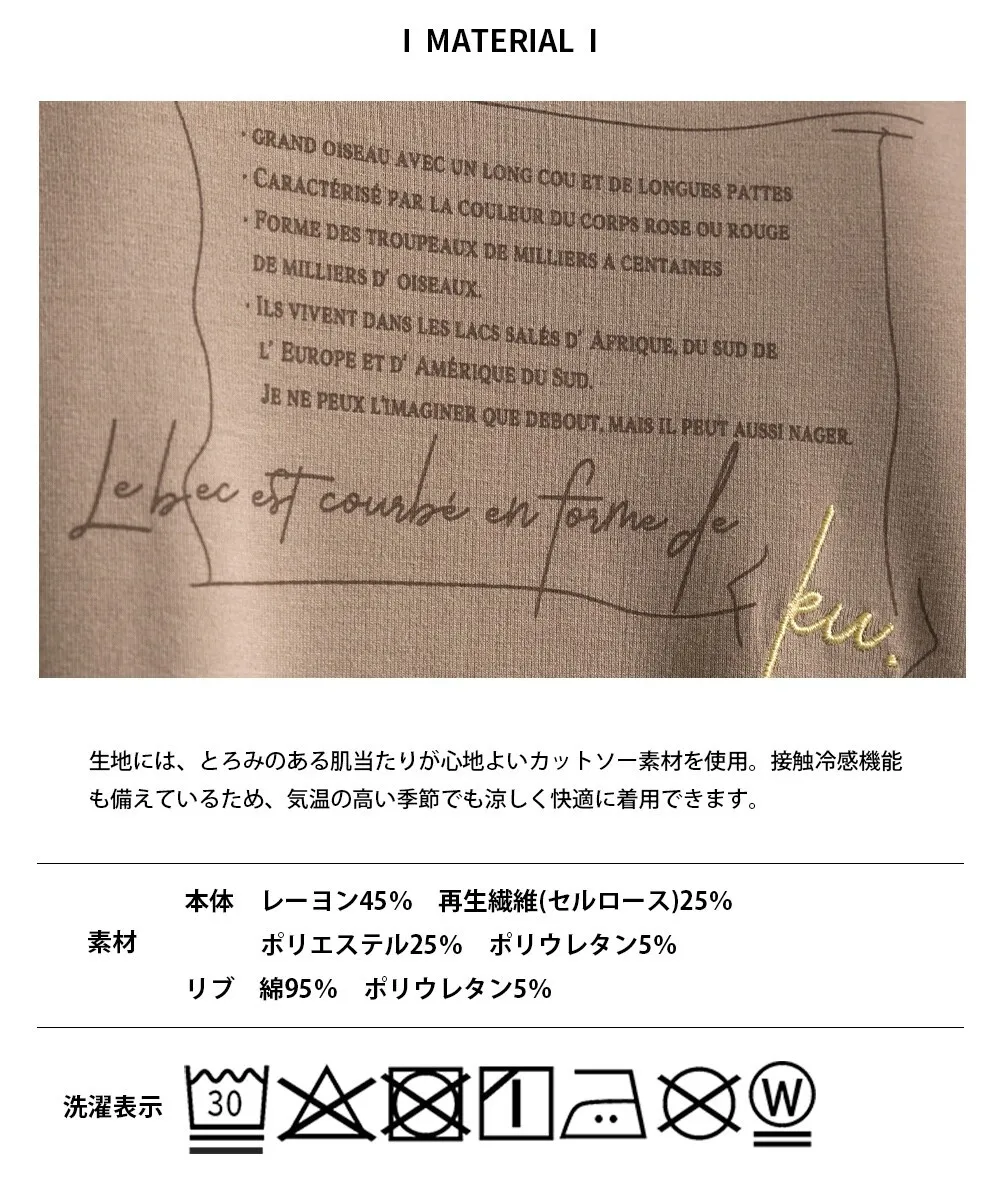 MATERIAL
・GRAND OISEAU AVEC UN LONG COU ET DE LONGUES PATTES
・CARACTÉRISÉ PAR LA COULEUR DU CORPS ROSE OU ROUGE
・FORME DES TROUPEAUX DE MILLIERS A CENTAINES
DE MILLIERS D' OISEAUX.
・ILS VIVENT DANS LES LACS SALÉS D' AFRIQUE, DU SUD DE
L' EUROPE ET D' AMÉRIQUE DU SUD.
JE NE PEUX L'IMAGINER QUE DEBOUT, MAIS IL PEUT AUSSI NAGER.
Le bec est courbé en forme de
ku.
生地には、とろみのある肌当たりが心地よいカットソー素材を使用。接触冷感機能
も備えているため、気温の高い季節でも涼しく快適に着用できます。
素材
本体 レーヨン45% 再生繊維(セルロース)25%
ポリエステル25% ポリウレタン5%
リブ 綿95% ポリウレタン5%
洗濯表示 30 W